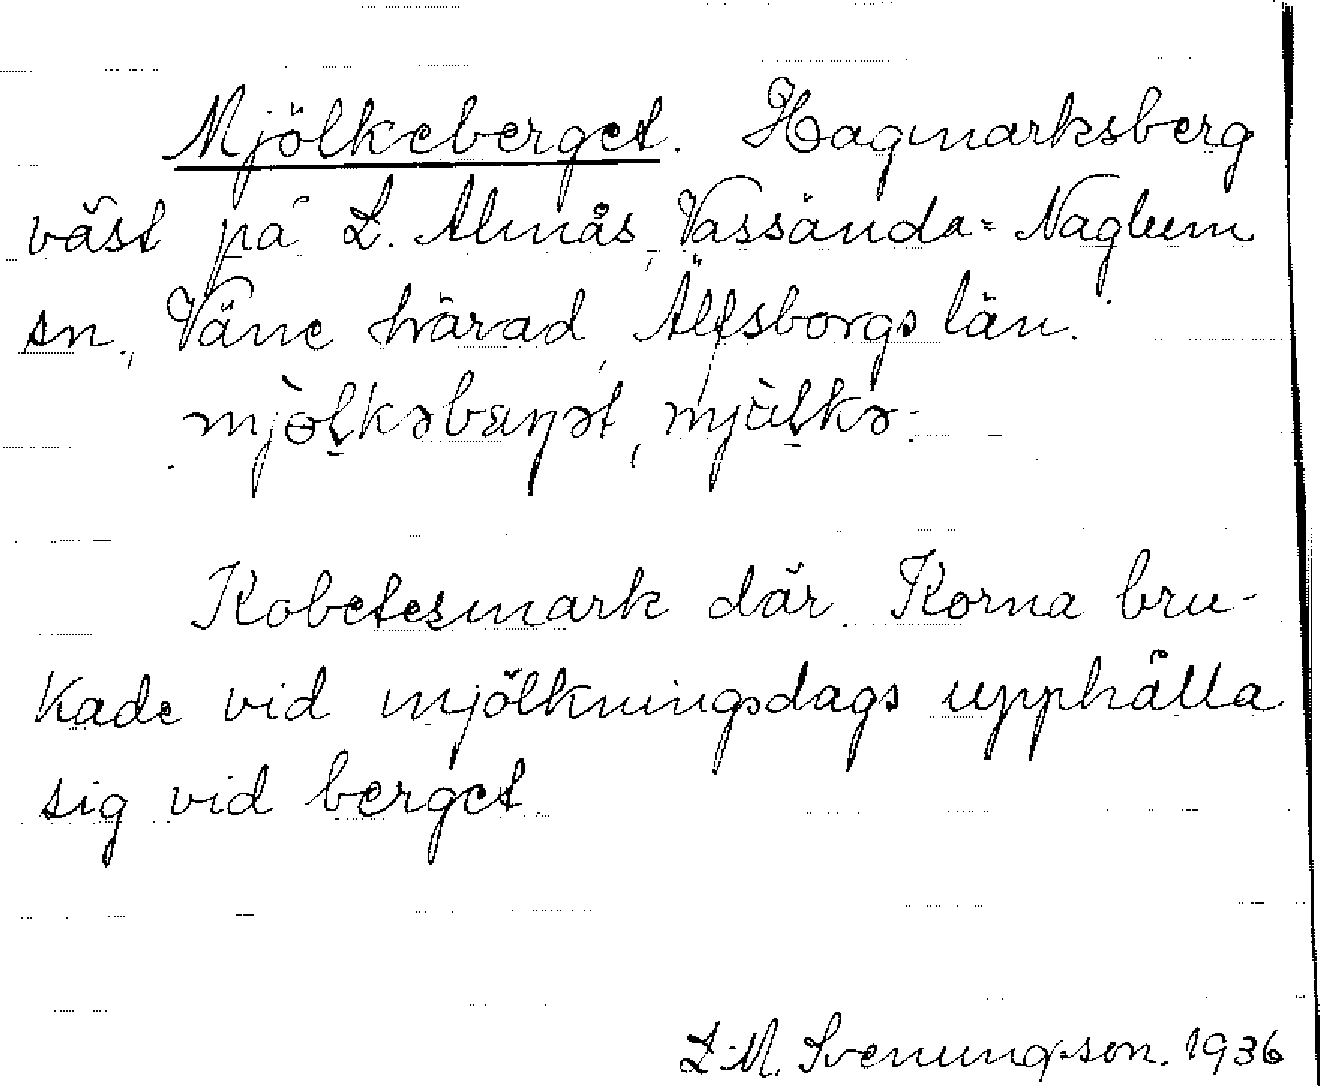 Mjölkeberget. Hagmarksberg
väst på L. Almås, Vassända-Naglum
sn., Väne härad, Älfsborgs län.
mjòlkəbærjət, mjùlkə-
Kobetesmark där. Korna bru-
kade vid mjölkningsdags upphålla
sig vid berget.
L-M. Svenungson. 1936